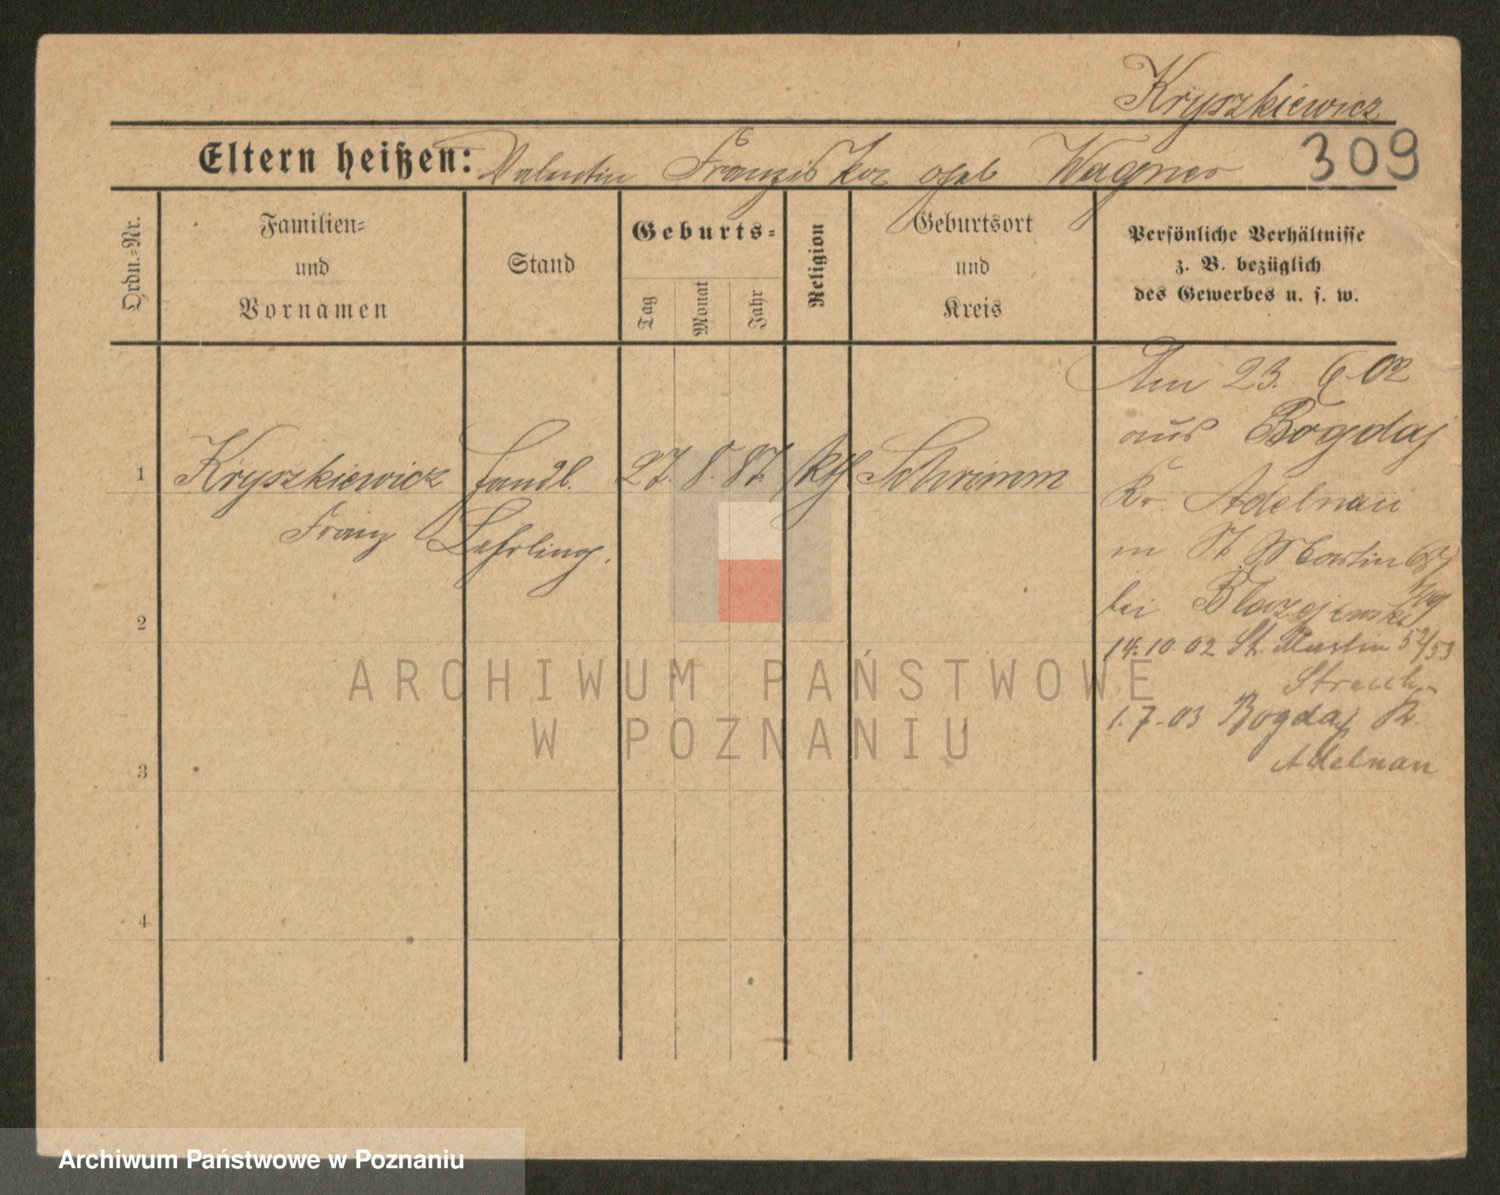 Kryszkiewicz
309
Eltern heißen: Valentin Franziska geb Wagner
Ordn.-Nr.
Familien-
und
Vornamen
Stand
Geburts-
Tag
Monat
Jahr
Religion
Geburtsort
und
Kreis
Persönliche Verhältnisse
z. B. bezüglich
des Gewerbes u. s. w.
1 Kryszkiewicz Handl. 27. 8. 87. kth Schrimm
Franz Lehrling.
2
3
4
Am 23. 6. 02
aus Bogdaj
Kr. Adelnau
in St Martin
bei
14. 10 02 St. Martin 52/53
1. 7. 03 Bogdaj K.
Adelnau
ARCHIWUM PAŃSTWOWE
W POZNANIU
Archiwum Państwowe w Poznaniu